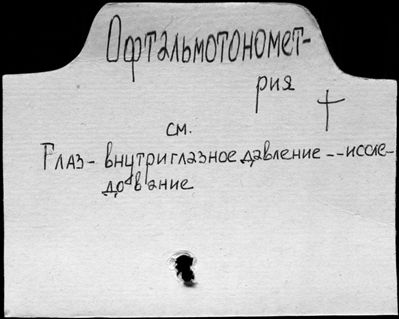 Офтальмотономет-
рия
см.
Глаз - внутриглазное давление -- иссле-
дование